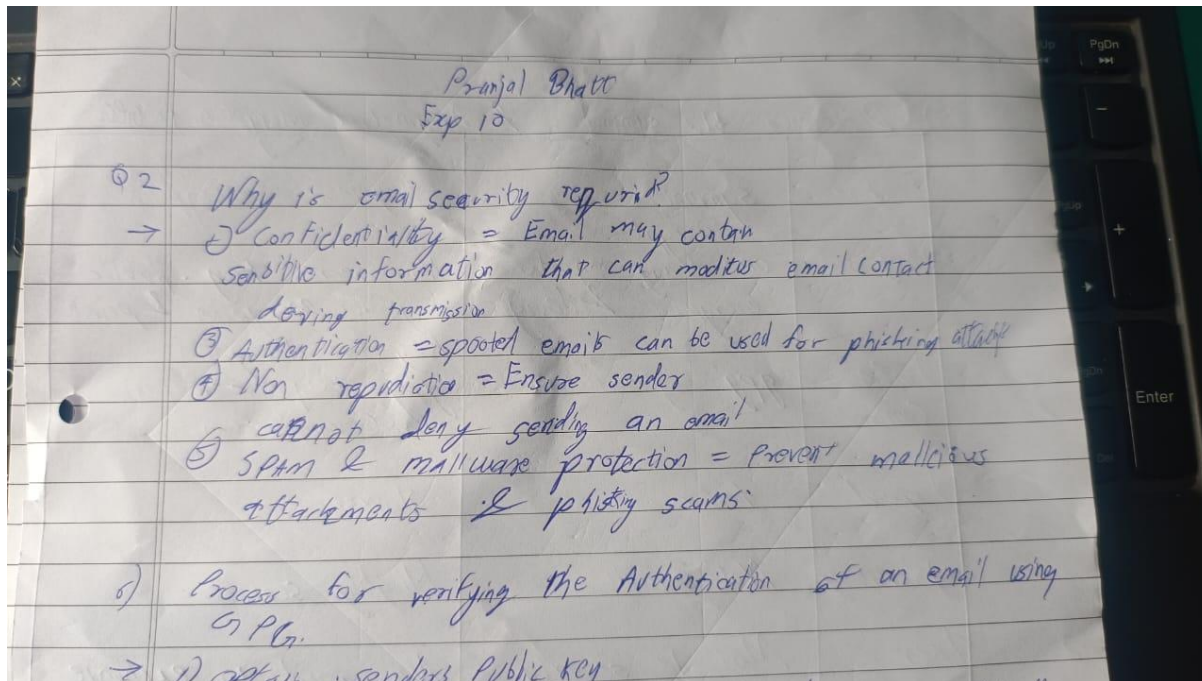 Pranjal Bhatt
Exp 10
Q 2 Why is email security required?
→ 1) Confidentiality = Email may contain
Sensitive information that can modifies email contact
during transmission
③ Authentication = spoofed emails can be used for phishing attack
④ Non repudiation = Ensure sender
cannot deny sending an email
⑤ SPAM & mallware protection = Prevent mallcious
attachments & phisking scams.
6) Process for verifying the Authentication of an email using
GPG.
→ 1) senders Public key
PgUp
PgDn
-
+
Enter